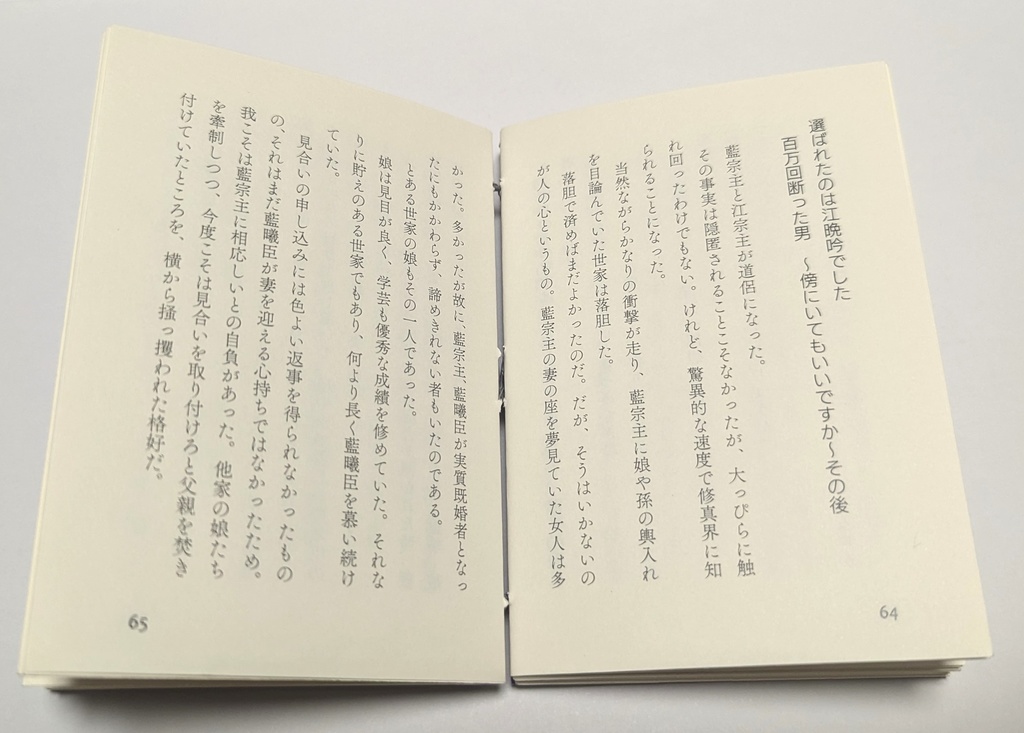 選ばれたのは江晩吟でした
百万回断った男　～傍にいてもいいですか～その後
藍宗主と江宗主が道侶になった。
その事実は隠匿されることこそなかったが、大っぴらに触
れ回ったわけでもない。けれど、驚異的な速度で修真界に知
られることになった。
当然ながらかなりの衝撃が走り、藍宗主に娘や孫の輿入れ
を目論んでいた世家は落胆した。
落胆で済めばまだよかったのだ。だが、そうはいかないの
が人の心というもの。藍宗主の妻の座を夢見ていた女人は多
64
かった。多かったが故に、藍宗主、藍曦臣が実質既婚者となっ
たにもかかわらず、諦めきれない者もいたのである。
とある世家の娘もその一人であった。
娘は見目が良く、学芸も優秀な成績を修めていた。それな
りに貯えのある世家でもあり、何より長く藍曦臣を慕い続け
ていた。
見合いの申し込みには色よい返事を得られなかったもの
の、それはまだ藍曦臣が妻を迎える心持ちではなかったため。
我こそは藍宗主に相応しいとの自負があった。他家の娘たち
を牽制しつつ、今度こそは見合いを取り付けろと父親を焚き
付けていたところを、横から掻っ攫われた格好だ。
65